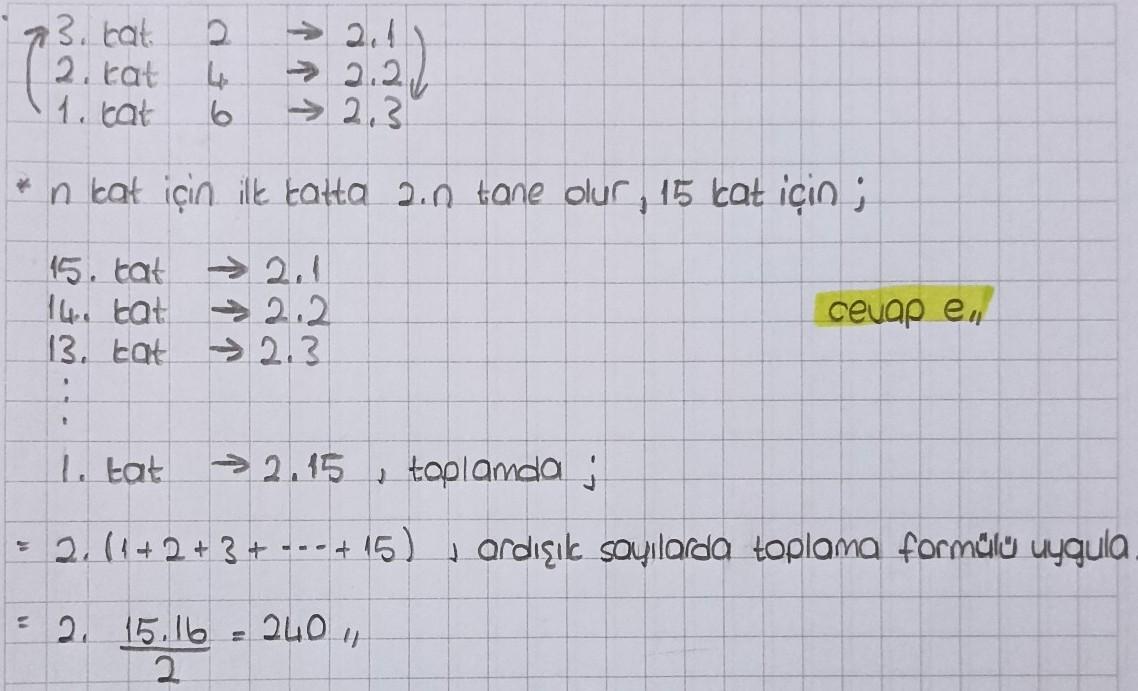 3. kat 2 → 2.1
2. kat 4 → 2.2
1. kat 6 → 2.3
* n kat için ilk katta 2.n tane olur, 15 kat için;
15. kat → 2.1
14. kat → 2.2
13. kat → 2.3
cevap e,,
⋮
1. kat → 2.15, toplamda;
= 2.(1+2+3+----+15), ardışık sayılarda toplama formülü uygula.
= 2. 15.16/2 = 240,,